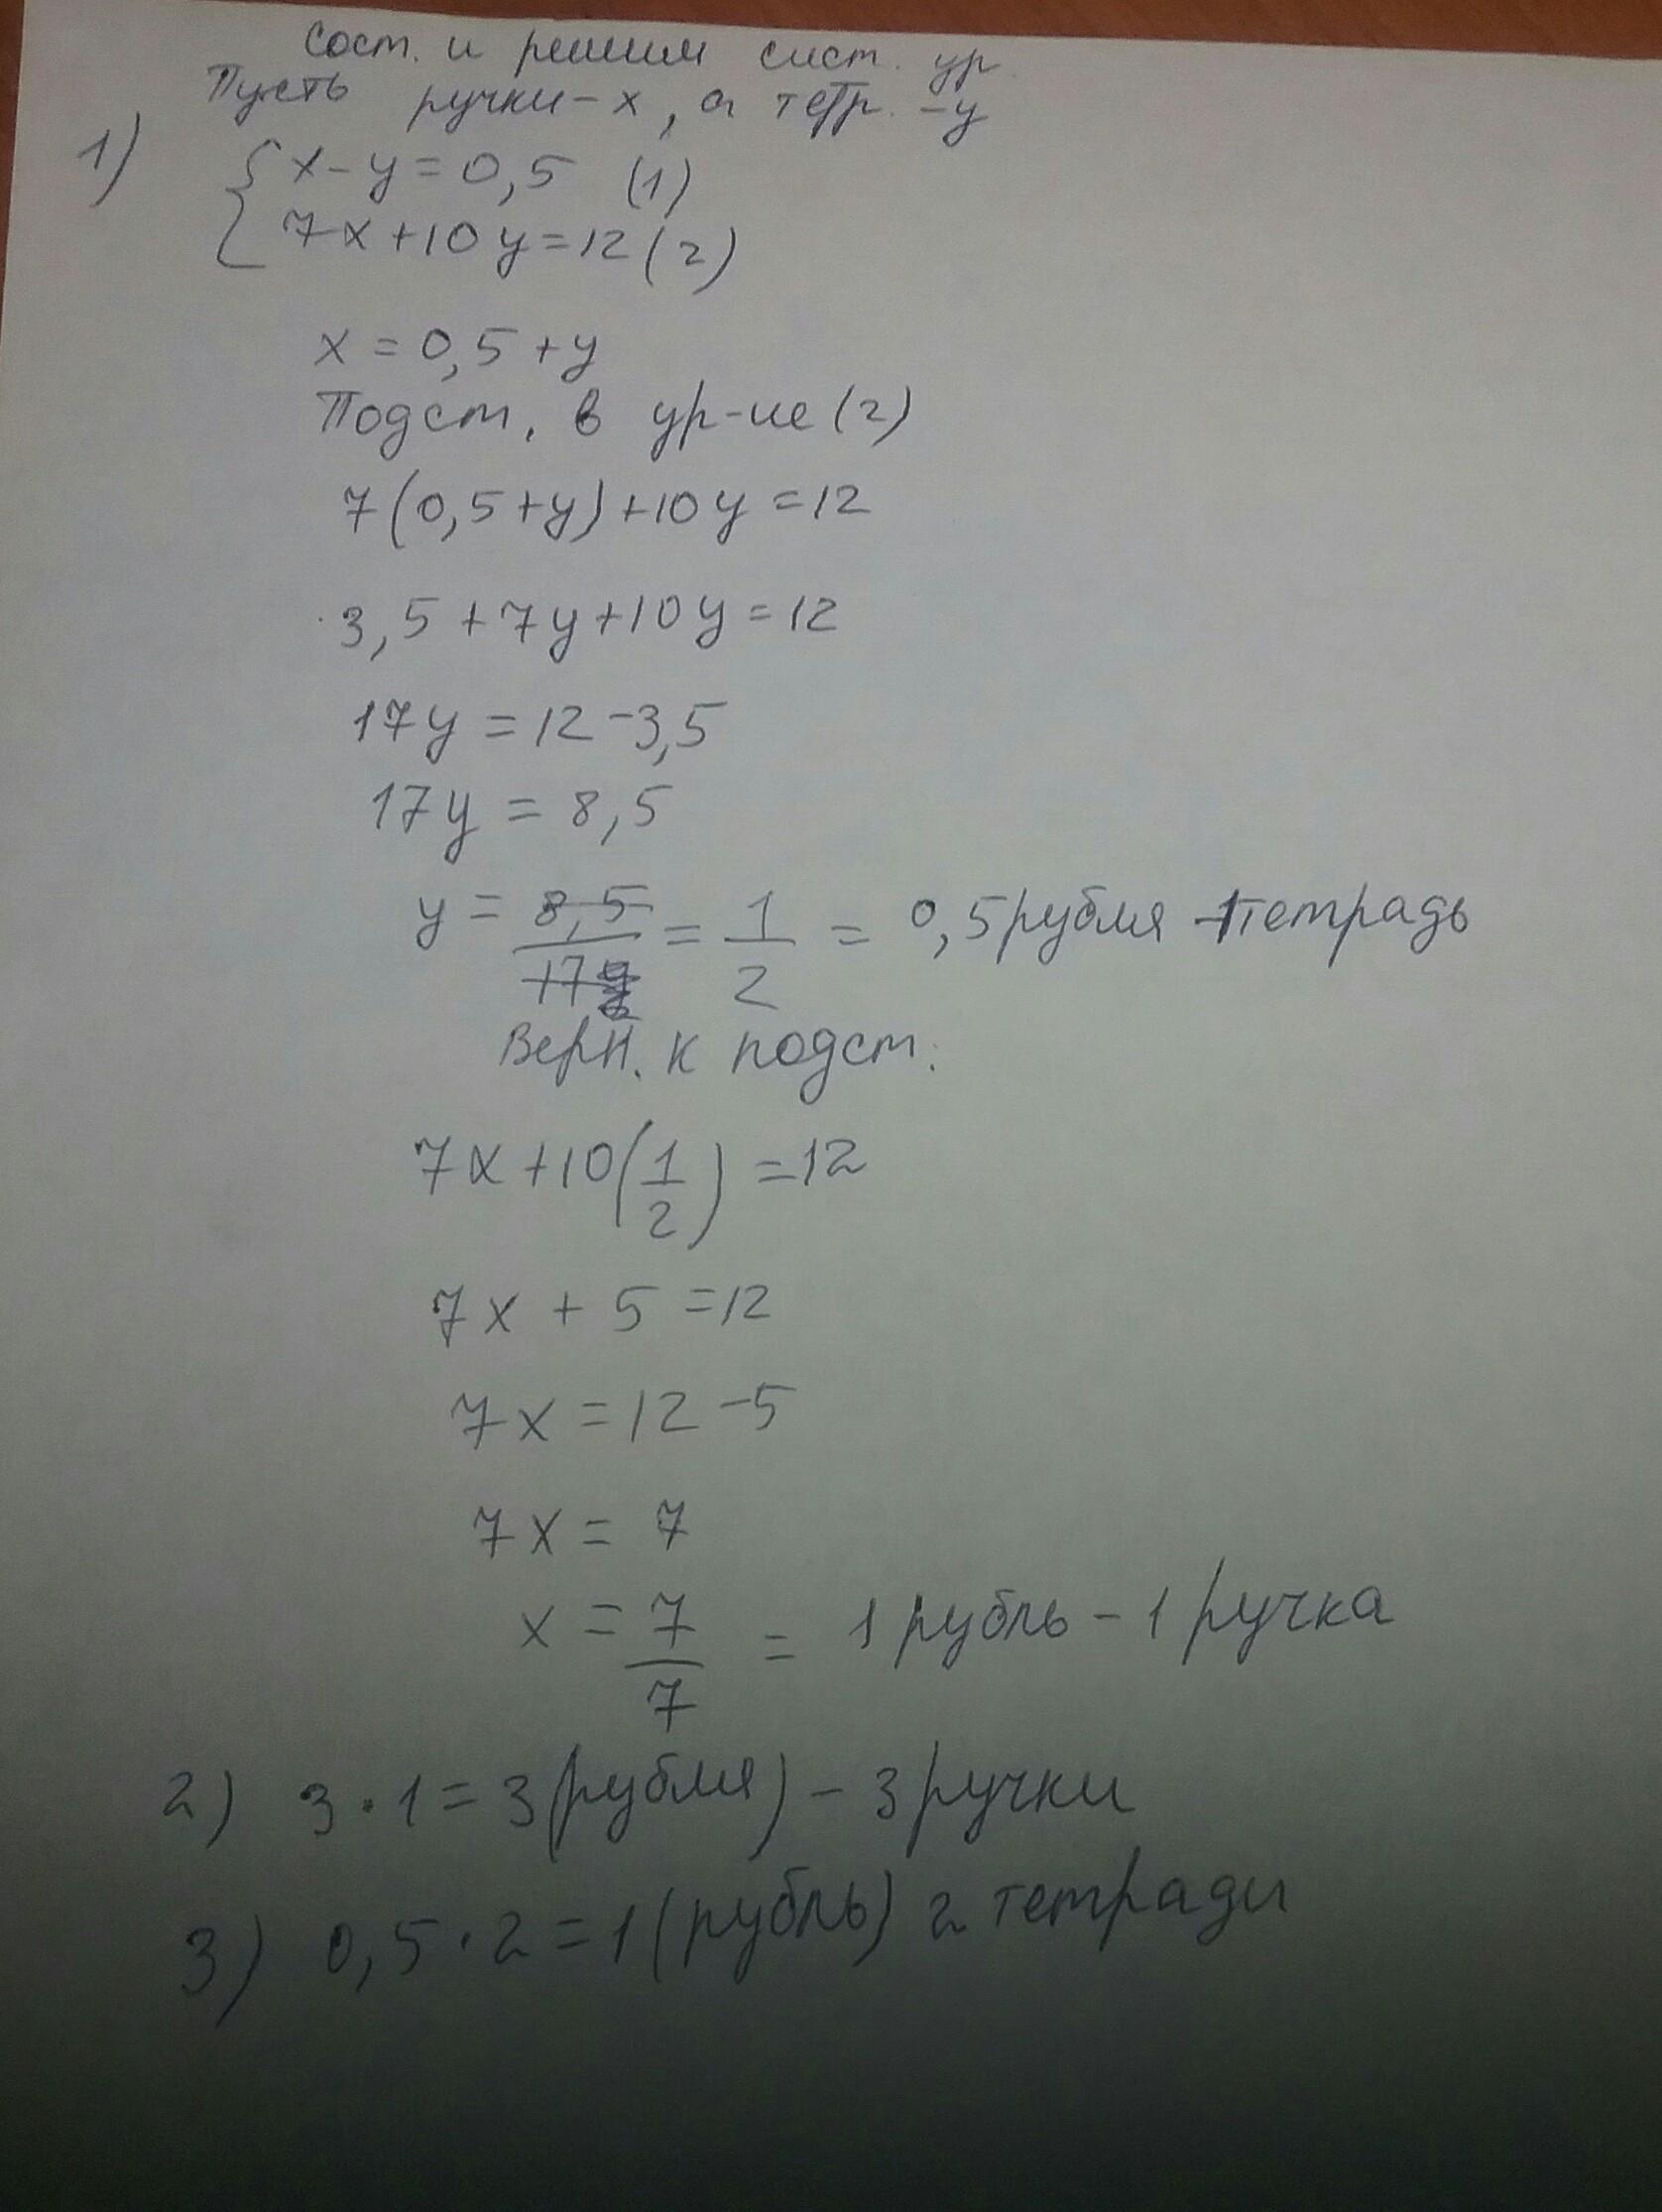 Сост. и решим сист. ур.
Пусть ручки - x, а тетр. - y
1) { x - y = 0,5 (1)
7x + 10y = 12 (2)
x = 0,5 + y
Подст. в ур-ие (2)
7(0,5 + y) + 10y = 12
3,5 + 7y + 10y = 12
17y = 12 - 3,5
17y = 8,5
y = 8,5/17 = 1/2 = 0,5 рубля - 1 тетрадь
Верн. к подст.
7x + 10(1/2) = 12
7x + 5 = 12
7x = 12 - 5
7x = 7
x = 7/7 = 1 рубль - 1 ручка
2) 3 · 1 = 3 (рубля) - 3 ручки
3) 0,5 · 2 = 1 (рубль) 2 тетради